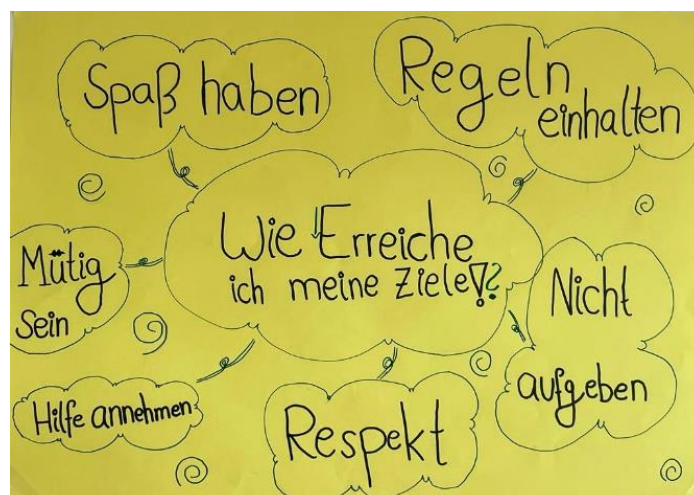 Spaß haben
Regeln
einhalten
Wie Erreiche
ich meine Ziele!?
Mütig
Sein
Nicht
aufgeben
Hilfe annehmen
Respekt